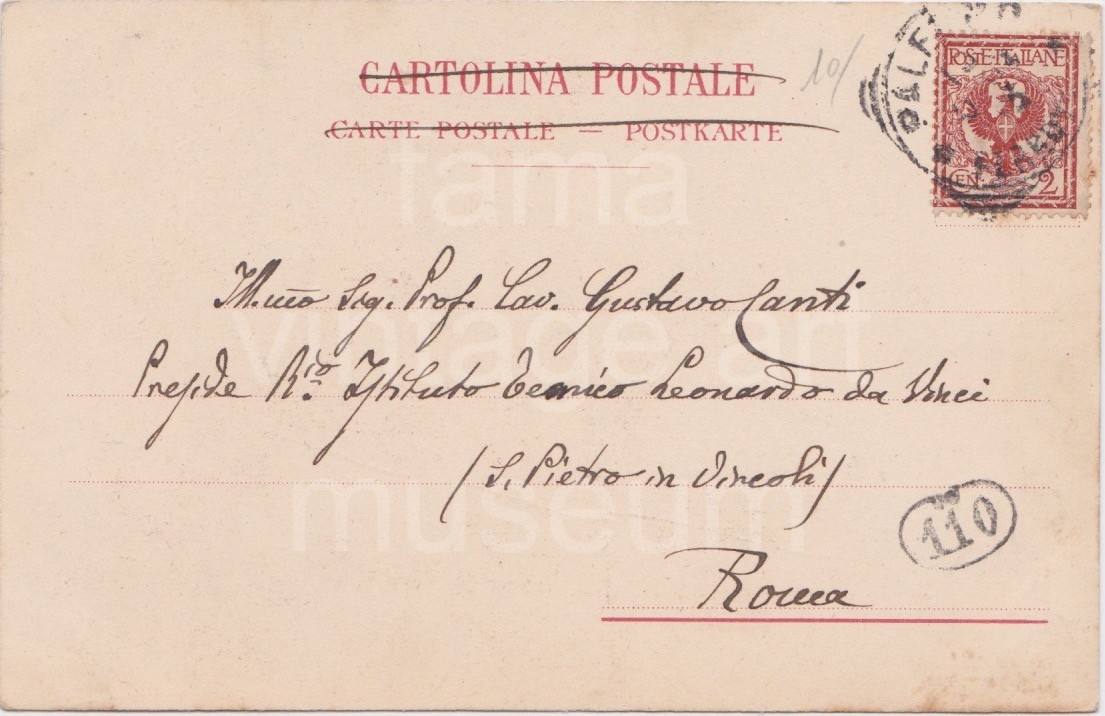 CARTOLINA POSTALE
CARTE POSTALE — POSTKARTE
10/
POSTE ITALIANE
CEN. 2
Ill.mo Sig. Prof. Cav. Gustavo Canti
Preside R.io Istituto Tecnico Leonardo da Vinci
(S. Pietro in Vincoli)
110
Roma
fama
vintage art
museum